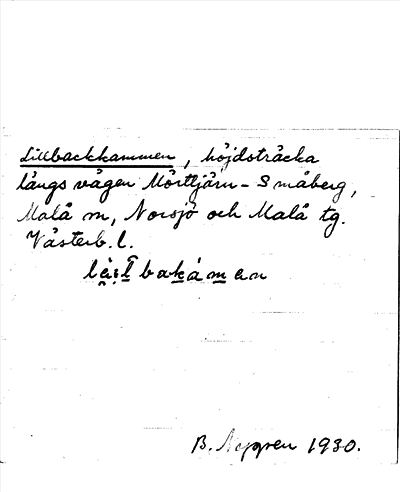 Lillbackkammen, höjdsträcka
längs vägen Mörttjärn - Småberg,
Malå sn, Norsjö och Malå tg.
Västerb. l.
B. 1930.